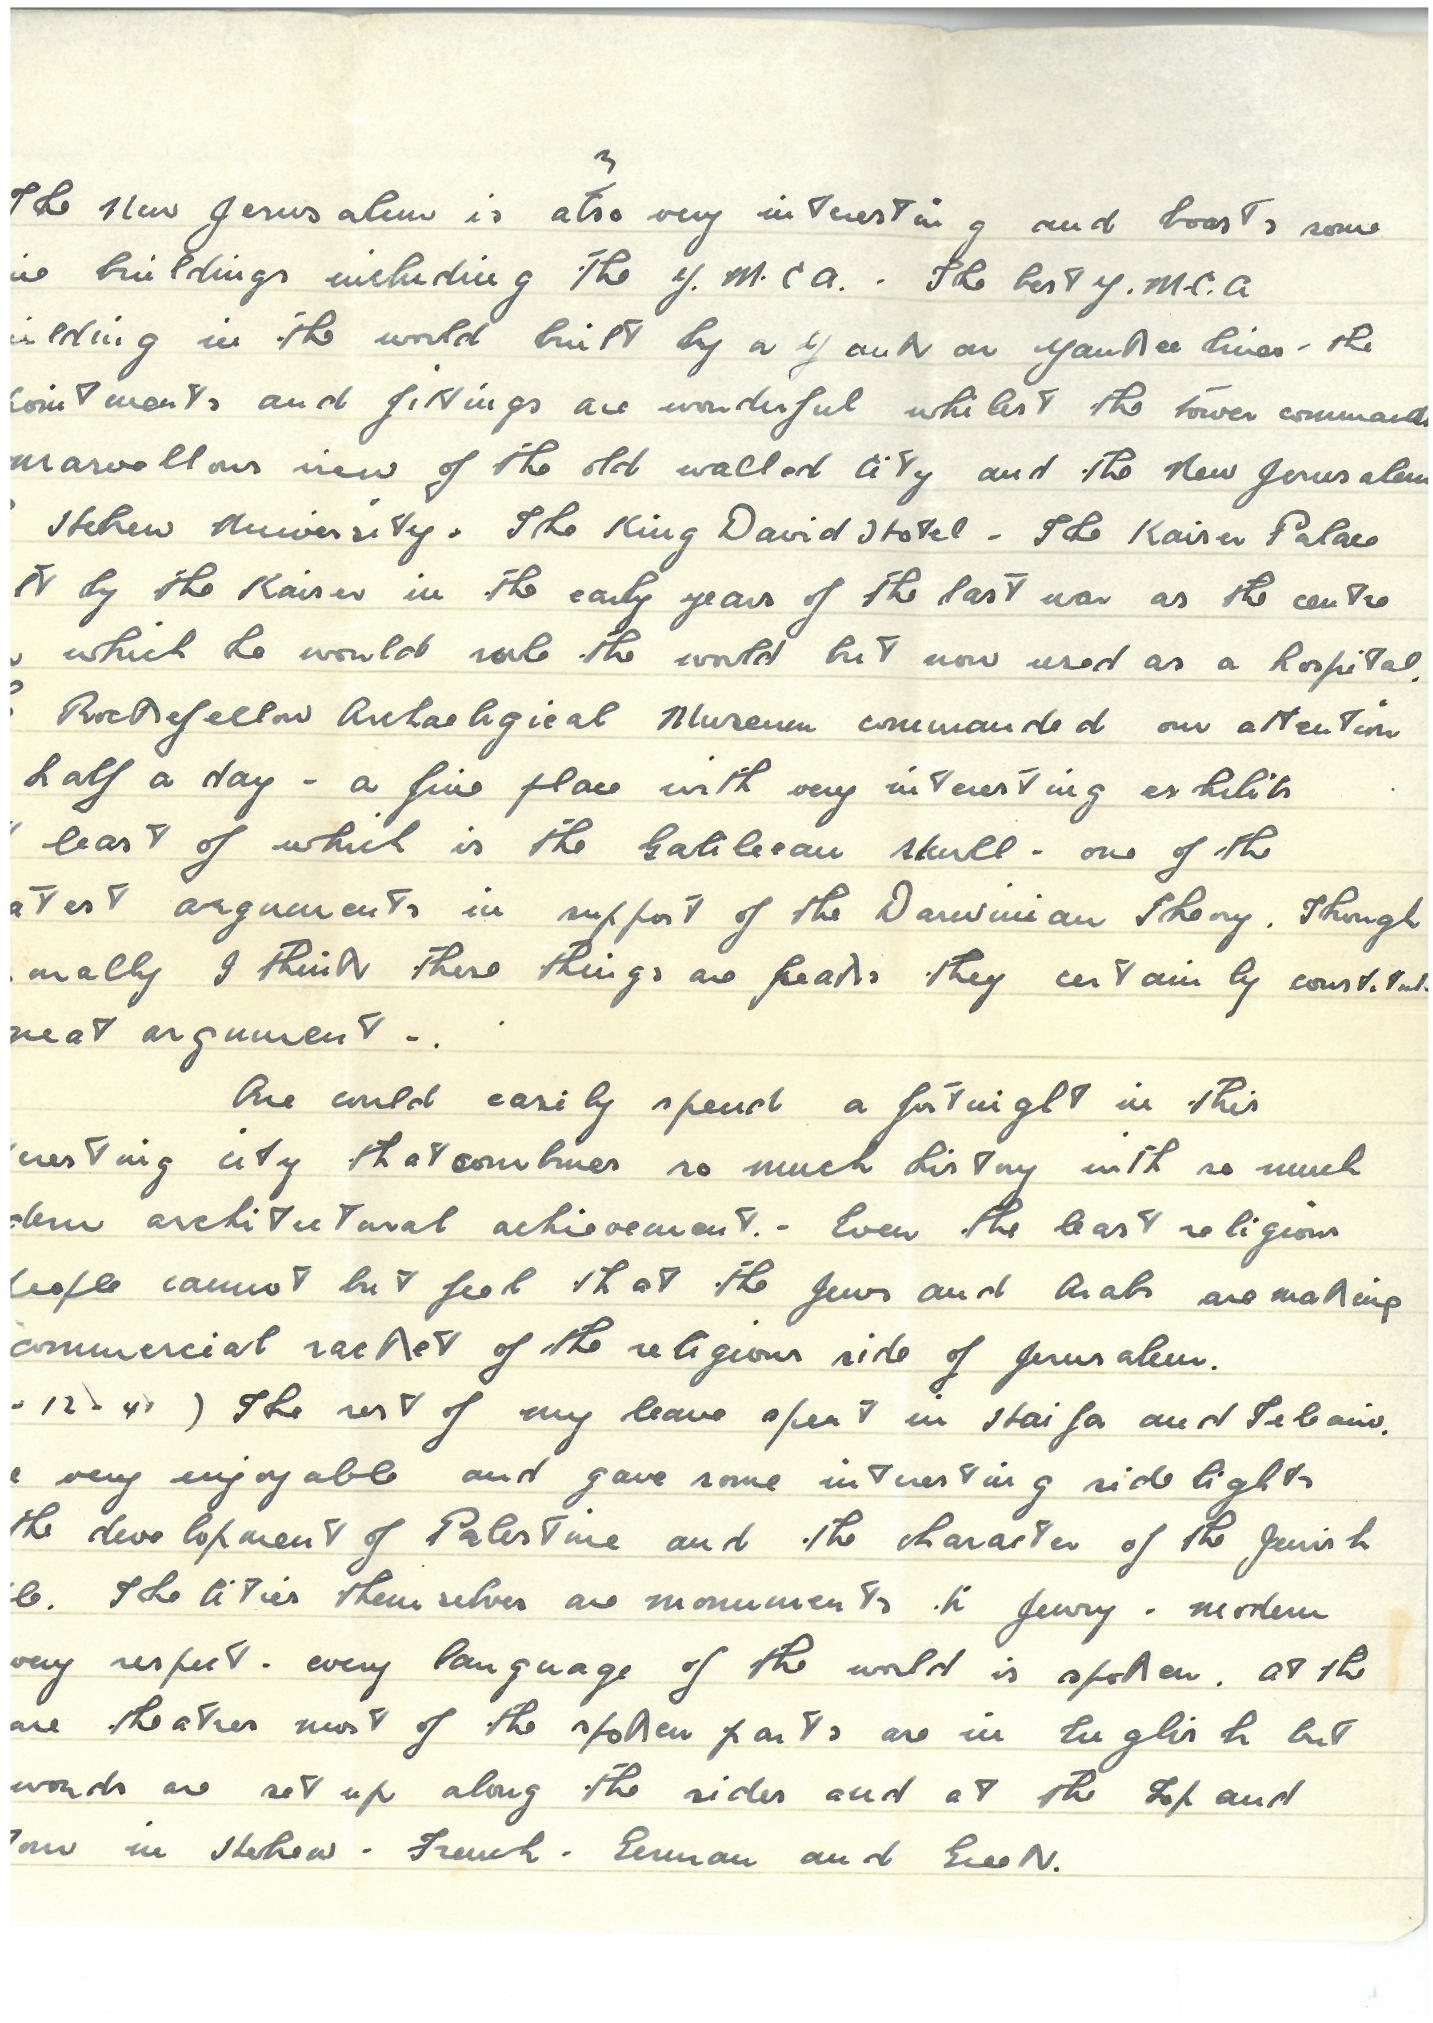 3
The New Jerusalem is also very interesting and boasts some
buildings including the Y.M.C.A. - The best Y.M.C.A
ilding in the world built by a Yank on Yankee lines - the
ointments and fittings are wonderful whilst the tower commands
marvellous view of the old walled City and the New Jerusalem
Hebrew University. The King David Hotel - The Kaiser Palace
lt by the Kaiser in the early years of the last war as the centre
which he would rule the world but now used as a hospital.
Rockefellow Archaelogical Museum commanded our attention
half a day - a fine place with very interesting exhibits
least of which is the Galileean skull - one of the
atest arguments in support of the Darwinian Theory. Though
onally I think these things are freaks they certainly constitute
neat argument -.
One could easily spend a fortnight in this
eresting city that combines so much history with so much
dern architectural achievement. - Even the least religious
people cannot but feel that the Jews and Arabs are making
commercial racket of the religious side of Jerusalem.
- 12 - 41 ) The rest of my leave spent in Haifa and Telaviv.
e very enjoyable and gave some interesting side lights
the development of Palestine and the character of the Jewish
le. The Cities themselves are monuments to Jewry - modern
very respect - every language of the world is spoken. At the
theatres most of the spoken parts are in English but
words are set up along the sides and at the top and
tom in Hebrew - French - German and Greek.